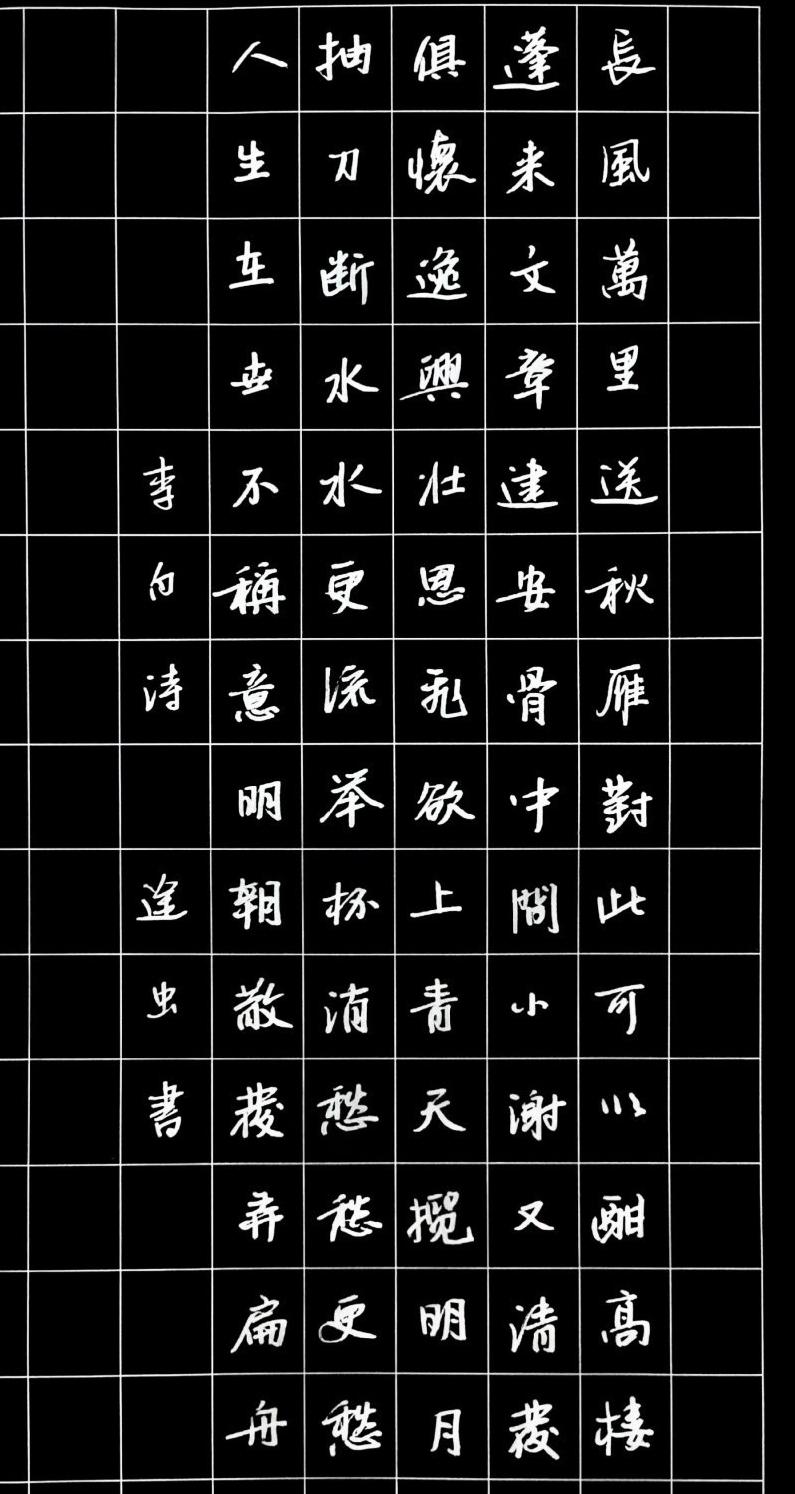 長風萬里送秋雁對此可以酣高樓
蓬来文章建安骨中間小謝又清發
俱懷逸興壮思飛欲上青天攬明月
抽刀断水水更流举杯消愁愁更愁
人生在世不稱意明朝散髮弄扁舟
李白诗
逢虫書